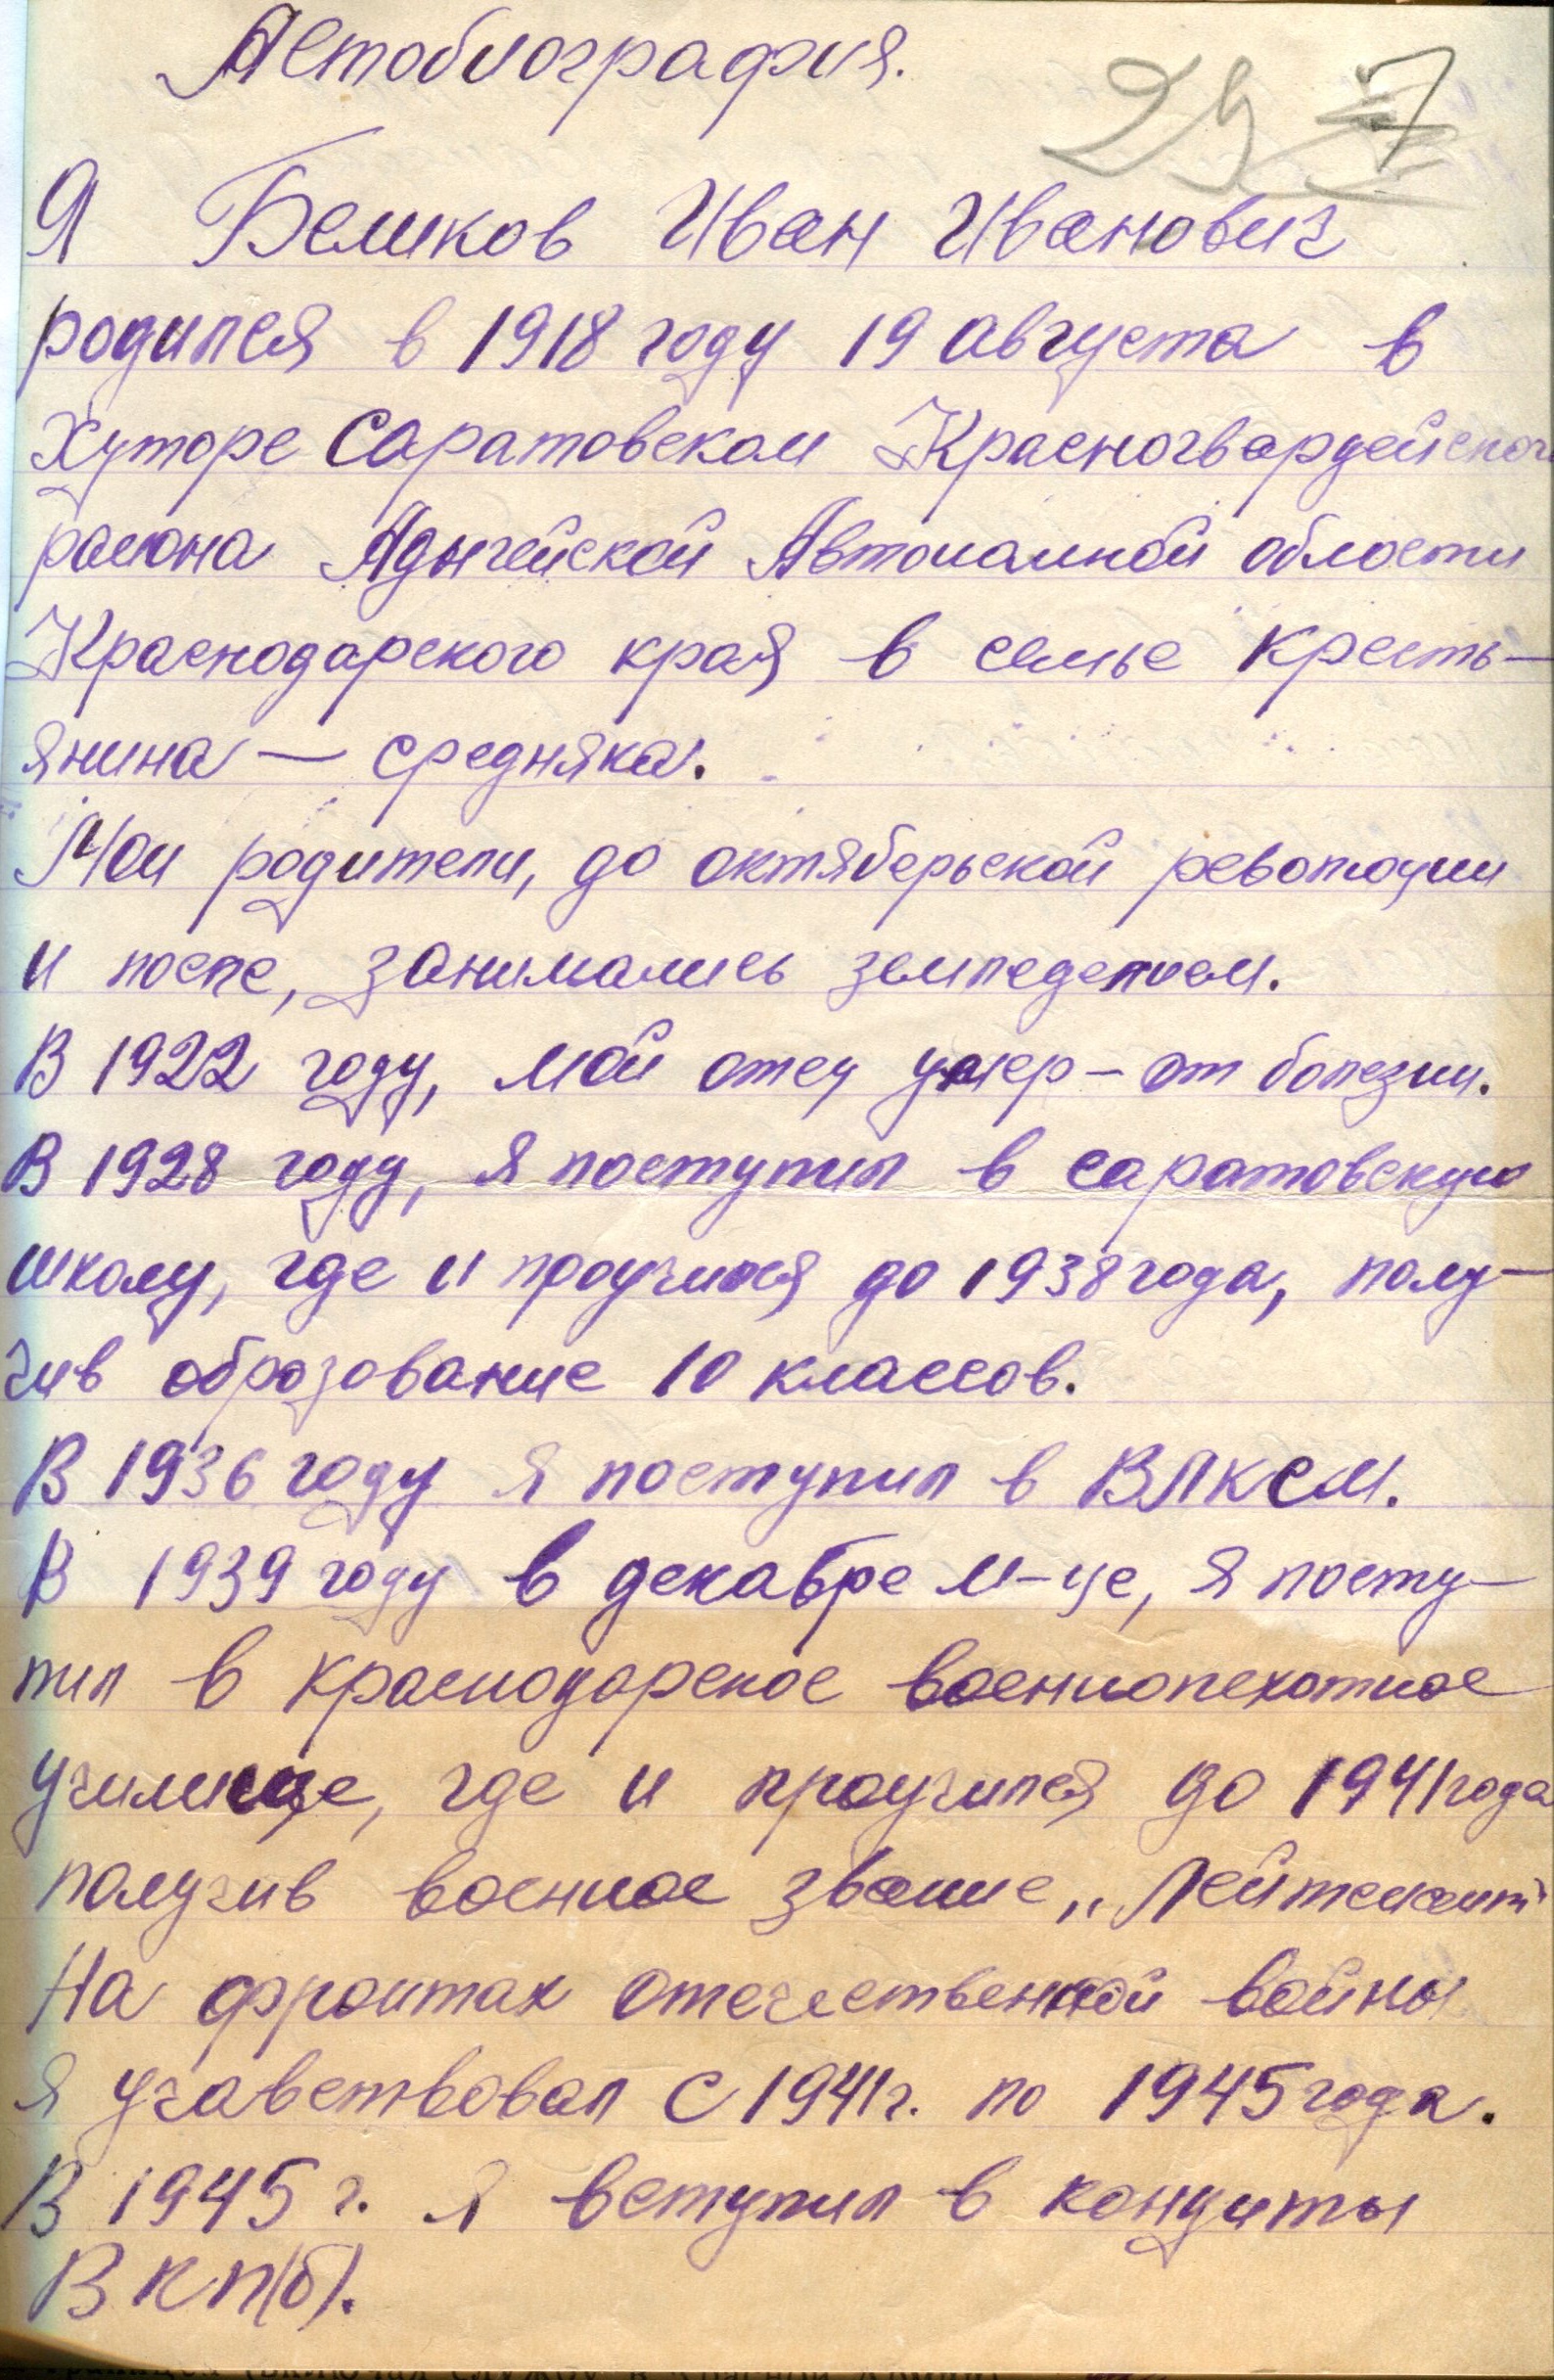 Автобиография.
29 7
Я Беликов Иван Иванович
родился в 1918 году 19 августа в
хуторе Саратовском Красногвардейского
района Адыгейской Автономной области
Краснодарского края в семье кресть—
янина — средняка.
Мои родители, до октяберьской революции
и после, занимались земледелием.
В 1922 году, мой отец умер – от болезни.
В 1928 году, я поступил в саратовскую
школу, где и проучился до 1938 года, полу—
чив образование 10 классов.
В 1936 году я поступил в ВЛКСМ.
В 1939 году в декабре м-це, я посту—
пил в Краснодарское военнопехотное
училище, где и проучился до 1941 года
получив военное звание „Лейтенант"
На фронтах отечественной войны
я учавствовал с 1941 г. по 1945 года.
В 1945 г. я вступил в кондиты
ВКП(б).